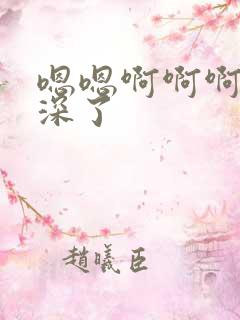 嗯嗯啊啊啊
深了
趙曦臣